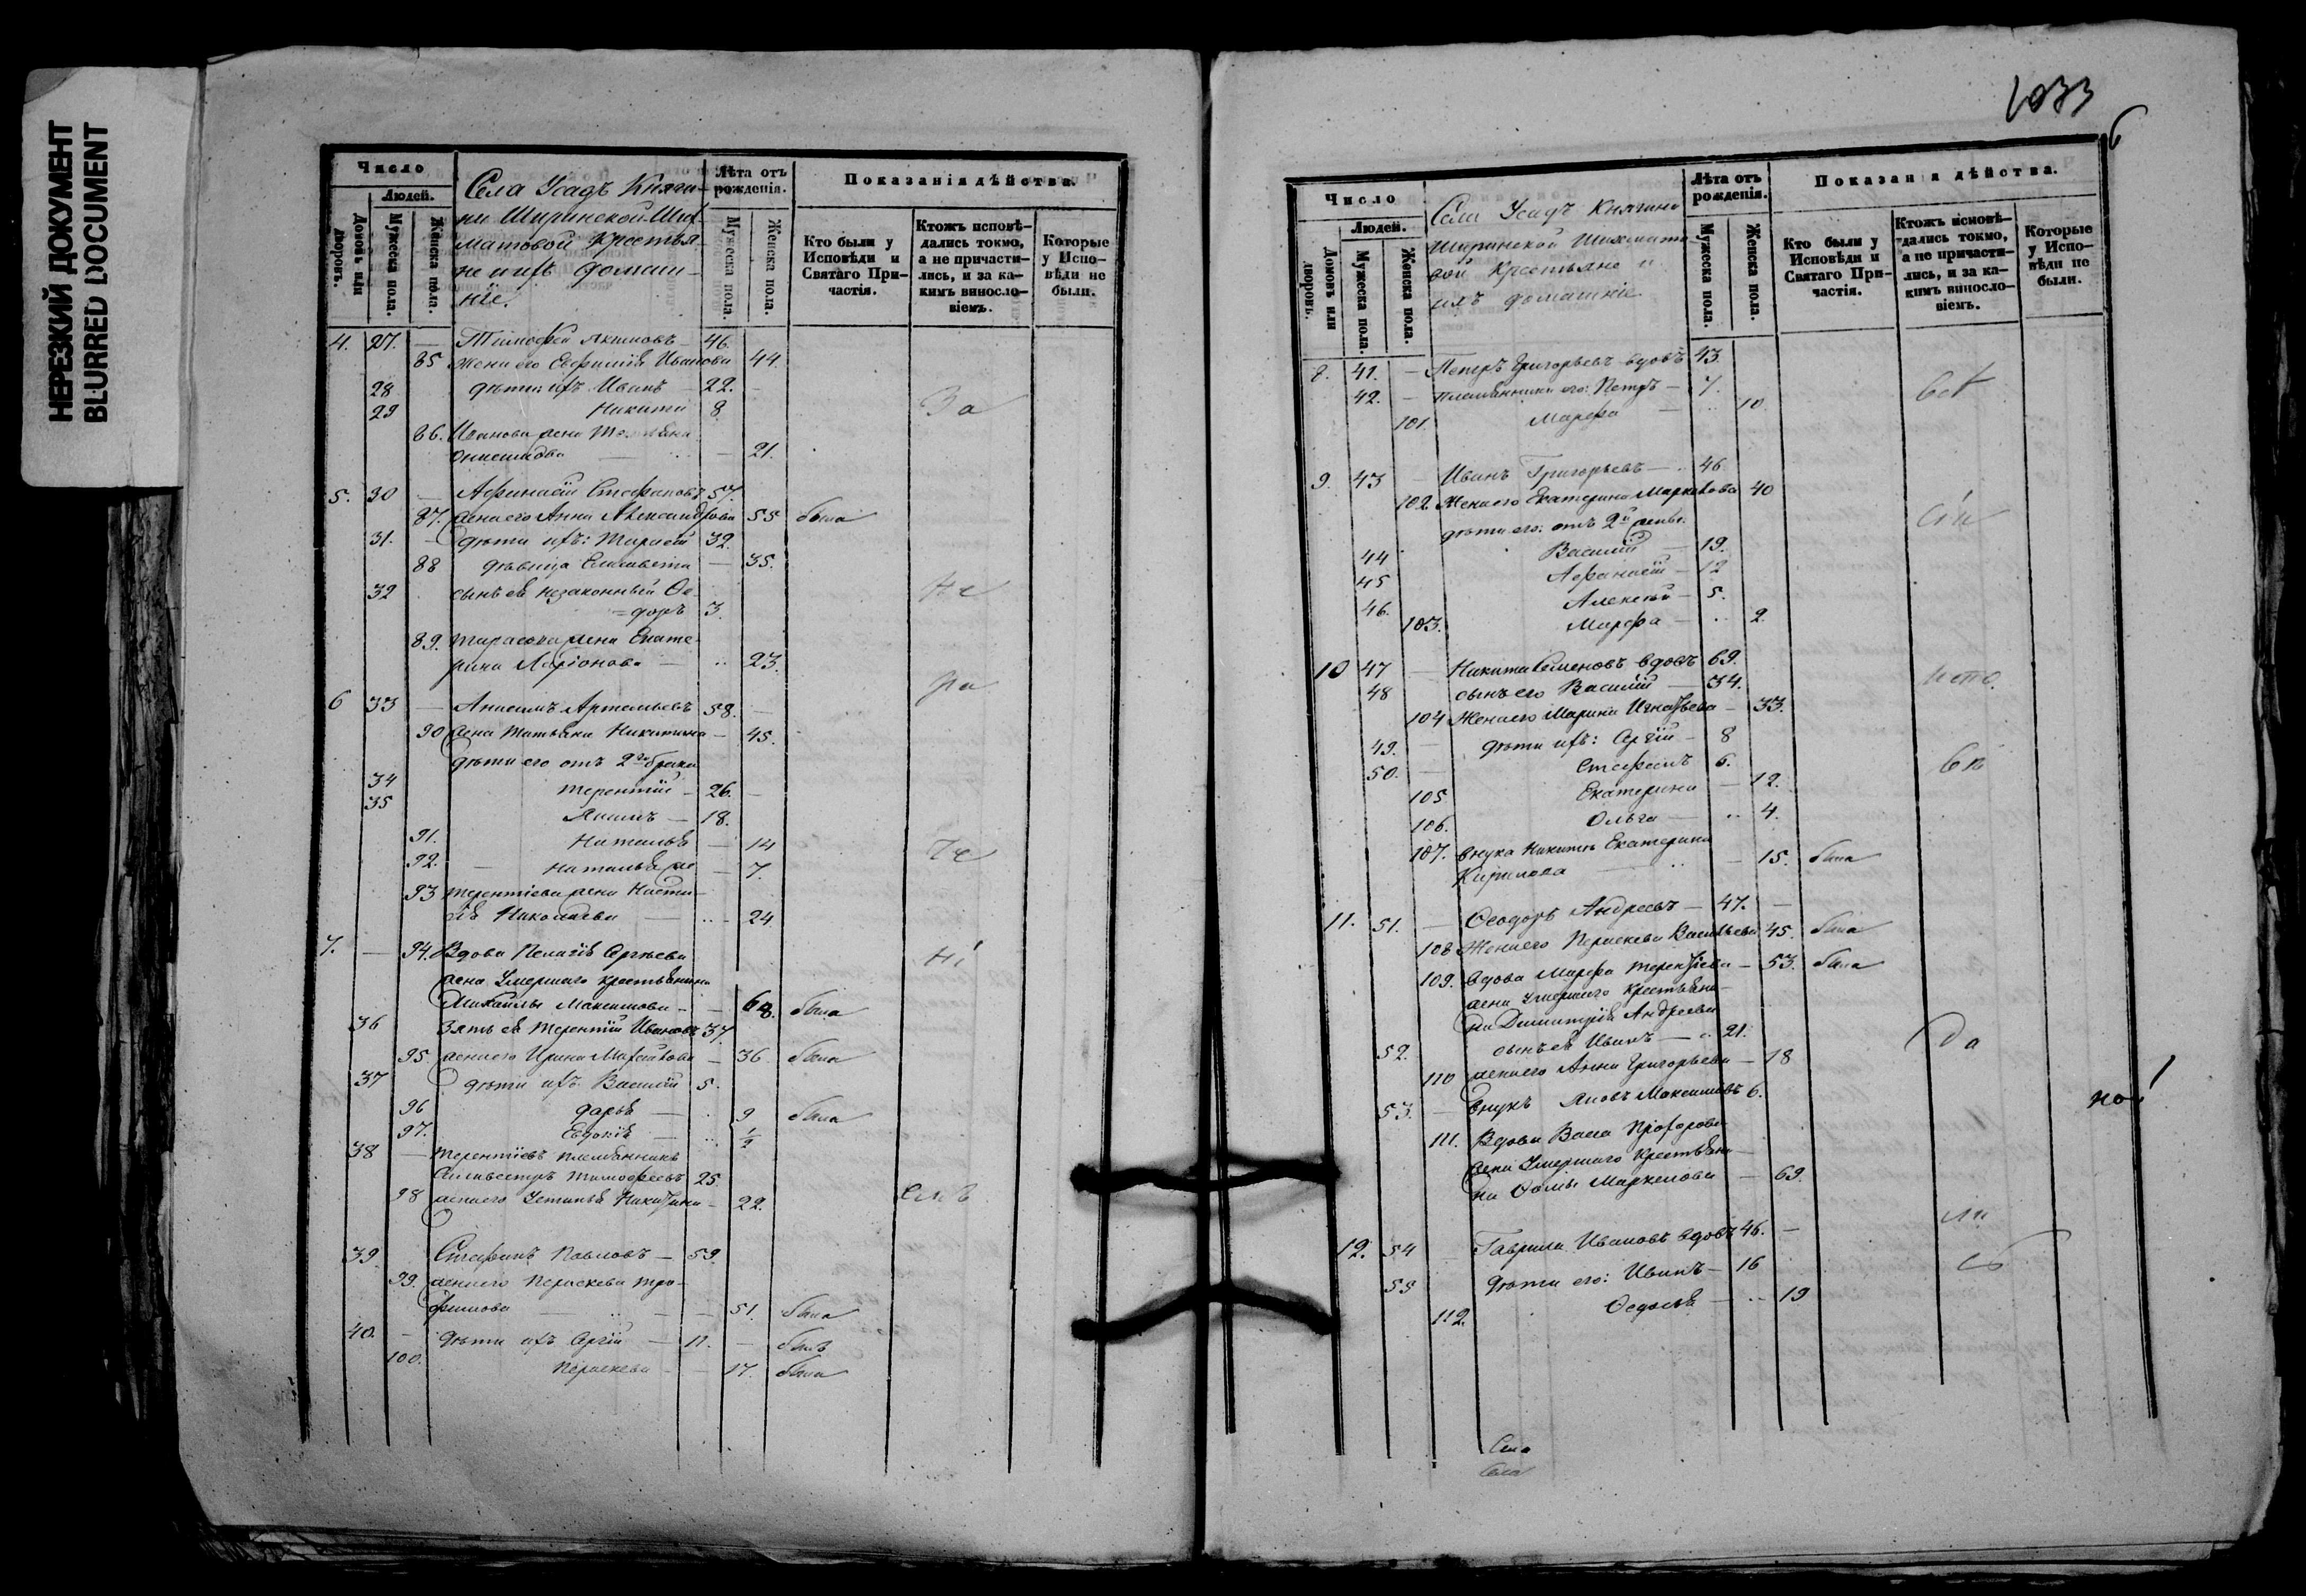 НЕРЕЗКИЙ ДОКУМЕНТ
BLURRED DOCUMENT
Число
Людей.
Домовъ или дворовъ.
Мужеска пола.
Женска пола.
Села Усадъ Княги-
ни Ширинской-Ших-
матовой Крестья-
не и ихъ домаш-
ніе.
Лѣта отъ рожденія.
Мужеска пола.
Женска пола.
Показанія дѣйства.
Кто были у Исповѣди и Святаго При-частія.
Ктожъ исповѣ-дались токмо, а не причасти-лись, и за ка-кимъ винослo-віемъ.
Которые у Испо-вѣди не были.
4. 27. — Тимофей Акимовъ — 46.
85 жена его Евфимія Иванова 44.
28 дѣти ихъ Иванъ — 22. —
29 Никита 8 За
86. Иванова жена
Онисимова — 21.
5. 30 — Афанасій Стефановъ 57.
87. жена его Анна Александрова 55 была
31. — дѣти ихъ: Тарасій 32.
88 дѣвица Елисавета — 35.
32 сынъ ея незаконный Ѳе- Не
=доръ 3.
89. Тарасова жена Екате-
рина Ларіонова — 23.
ра
6 33 — Анисимъ Артемьевъ 58. —
90 жена Татьяна Никитина — 45.
дѣти его отъ 2го брака
34 Терентій — 26. —
35 Акимъ — 18.
91. Наталья — 14 че
92. — Наталья же — 7.
93 Терентіева жена Наста-
сія Николаева — 24
7. — 94. Вдова Пелагія Сергѣева ні
жена умершаго крестьянина
Михайлы Максимова — 68. была
36 Зять ея Терентій Ивановъ 37
95. жена его Ирина Матвѣева — 36. была
37 дѣти ихъ Василій 5.
96 Дарья — 9 была
97. Евдокія — 1/2
38 — Терентіевъ племянникъ
Сильвестръ Тимофеевъ 25
98 жена его Устинья Никитина — 22. емъ
39. Стефанъ Павловъ — 59.
99. жена его Параскева Тро-
фимова — 51. была
40. — дѣти ихъ Сергій — 11. — былъ
100. Параскева — 17. была
1033
6
Число
Людей.
Домовъ или дворовъ.
Мужеска пола.
Женска пола.
Села Усадъ Княгини
Ширинской Шихмато-
вой Крестьяне и
ихъ домашніе
Лѣта отъ рожденія.
Мужеска пола.
Женска пола.
Показанія дѣйства.
Кто были у Исповѣди и Святаго При-частія.
Ктожъ исповѣ-дались токмо, а не причасти-лись, и за ка-кимъ винослo-віемъ.
Которые у Испо-вѣди не были.
8. 41. — Петръ Григорьевъ вдовъ 43.
42. — племянники его: Петръ — 7.
101. Марфа — 10.
9. 43 — Иванъ Григорьевъ — 46
102 Жена его Екатерина Маркелова 40
дѣти его: отъ 2й жены
44 Василій — 19.
45 Афанасій — 12
46. Алексѣй — 5.
103. Марфа — 2.
10 47 — Никита Семеновъ вдовъ 69.
48 сынъ его Василій — 34.
104 Жена его Марина Игнатьева — 33.
49. — дѣти ихъ: Сергій — 8
50. — Стефанъ 6.
105 Екатерина — 12.
106. Ольга — 4.
107. внука Никиты Екатерина
Кирилова — 15. была
11. 51. — Ѳеодоръ Андреевъ — 47. —
108 Жена его Параскева Васильева 45. была
109. вдова Марфа Терентіева — 53. была
жена умершаго крестьяни-
на Димитрія Андреева
52. сынъ ея Иванъ — 21.
110 жена его Анна Григорьева — 18
53. — внукъ Яковъ Максимовъ 6.
но
111. Вдова Васса Прохорова
жена умершаго крестьяни-
на Ѳомы Маркелова — 69.
12. 54 — Гаврила Ивановъ вдовъ 46. —
55 дѣти его: Иванъ — 16
112. Ѳедосья — 19
Села
Села